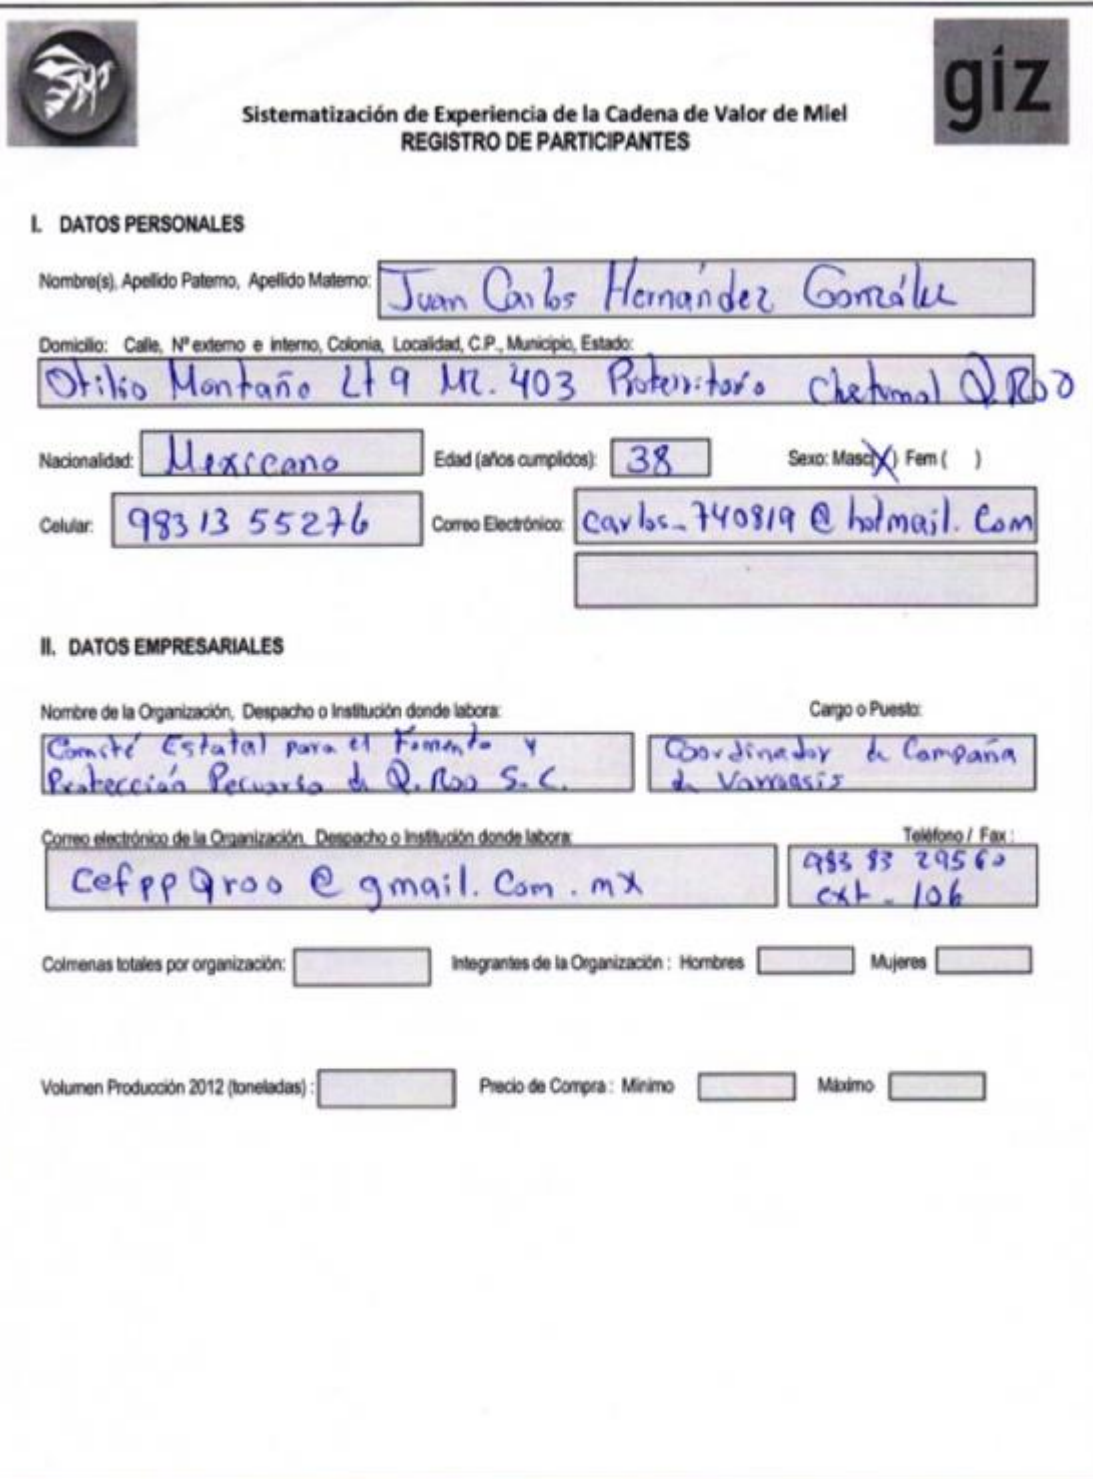 giz
Sistematización de Experiencia de la Cadena de Valor de Miel
REGISTRO DE PARTICIPANTES
I. DATOS PERSONALES
Nombre(s), Apellido Paterno, Apellido Materno: Juan Carlos Hernández González
Domicilio: Calle, Nº externo e interno, Colonia, Localidad, C.P., Municipio, Estado:
Otilio Montaño Lt 9 Mz. 403 Proterritorio Chetumal Q. Roo
Nacionalidad: Mexicano Edad (años cumplidos): 38 Sexo: Masc(X) Fem ( )
Celular: 983 13 55276 Correo Electrónico: carlos_740819@hotmail.com
II. DATOS EMPRESARIALES
Nombre de la Organización, Despacho o Institución donde labora: Cargo o Puesto:
Comité Estatal para el Fomento y Coordinador de Campaña
Protección Pecuaria de Q. Roo S.C. de Varroasis
Correo electrónico de la Organización, Despacho o Institución donde labora: Teléfono / Fax :
cefppqroo@gmail.com.mx 983 83 29560
ext. 106
Colmenas totales por organización: Integrantes de la Organización : Hombres Mujeres
Volumen Producción 2012 (toneladas) : Precio de Compra : Mínimo Máximo